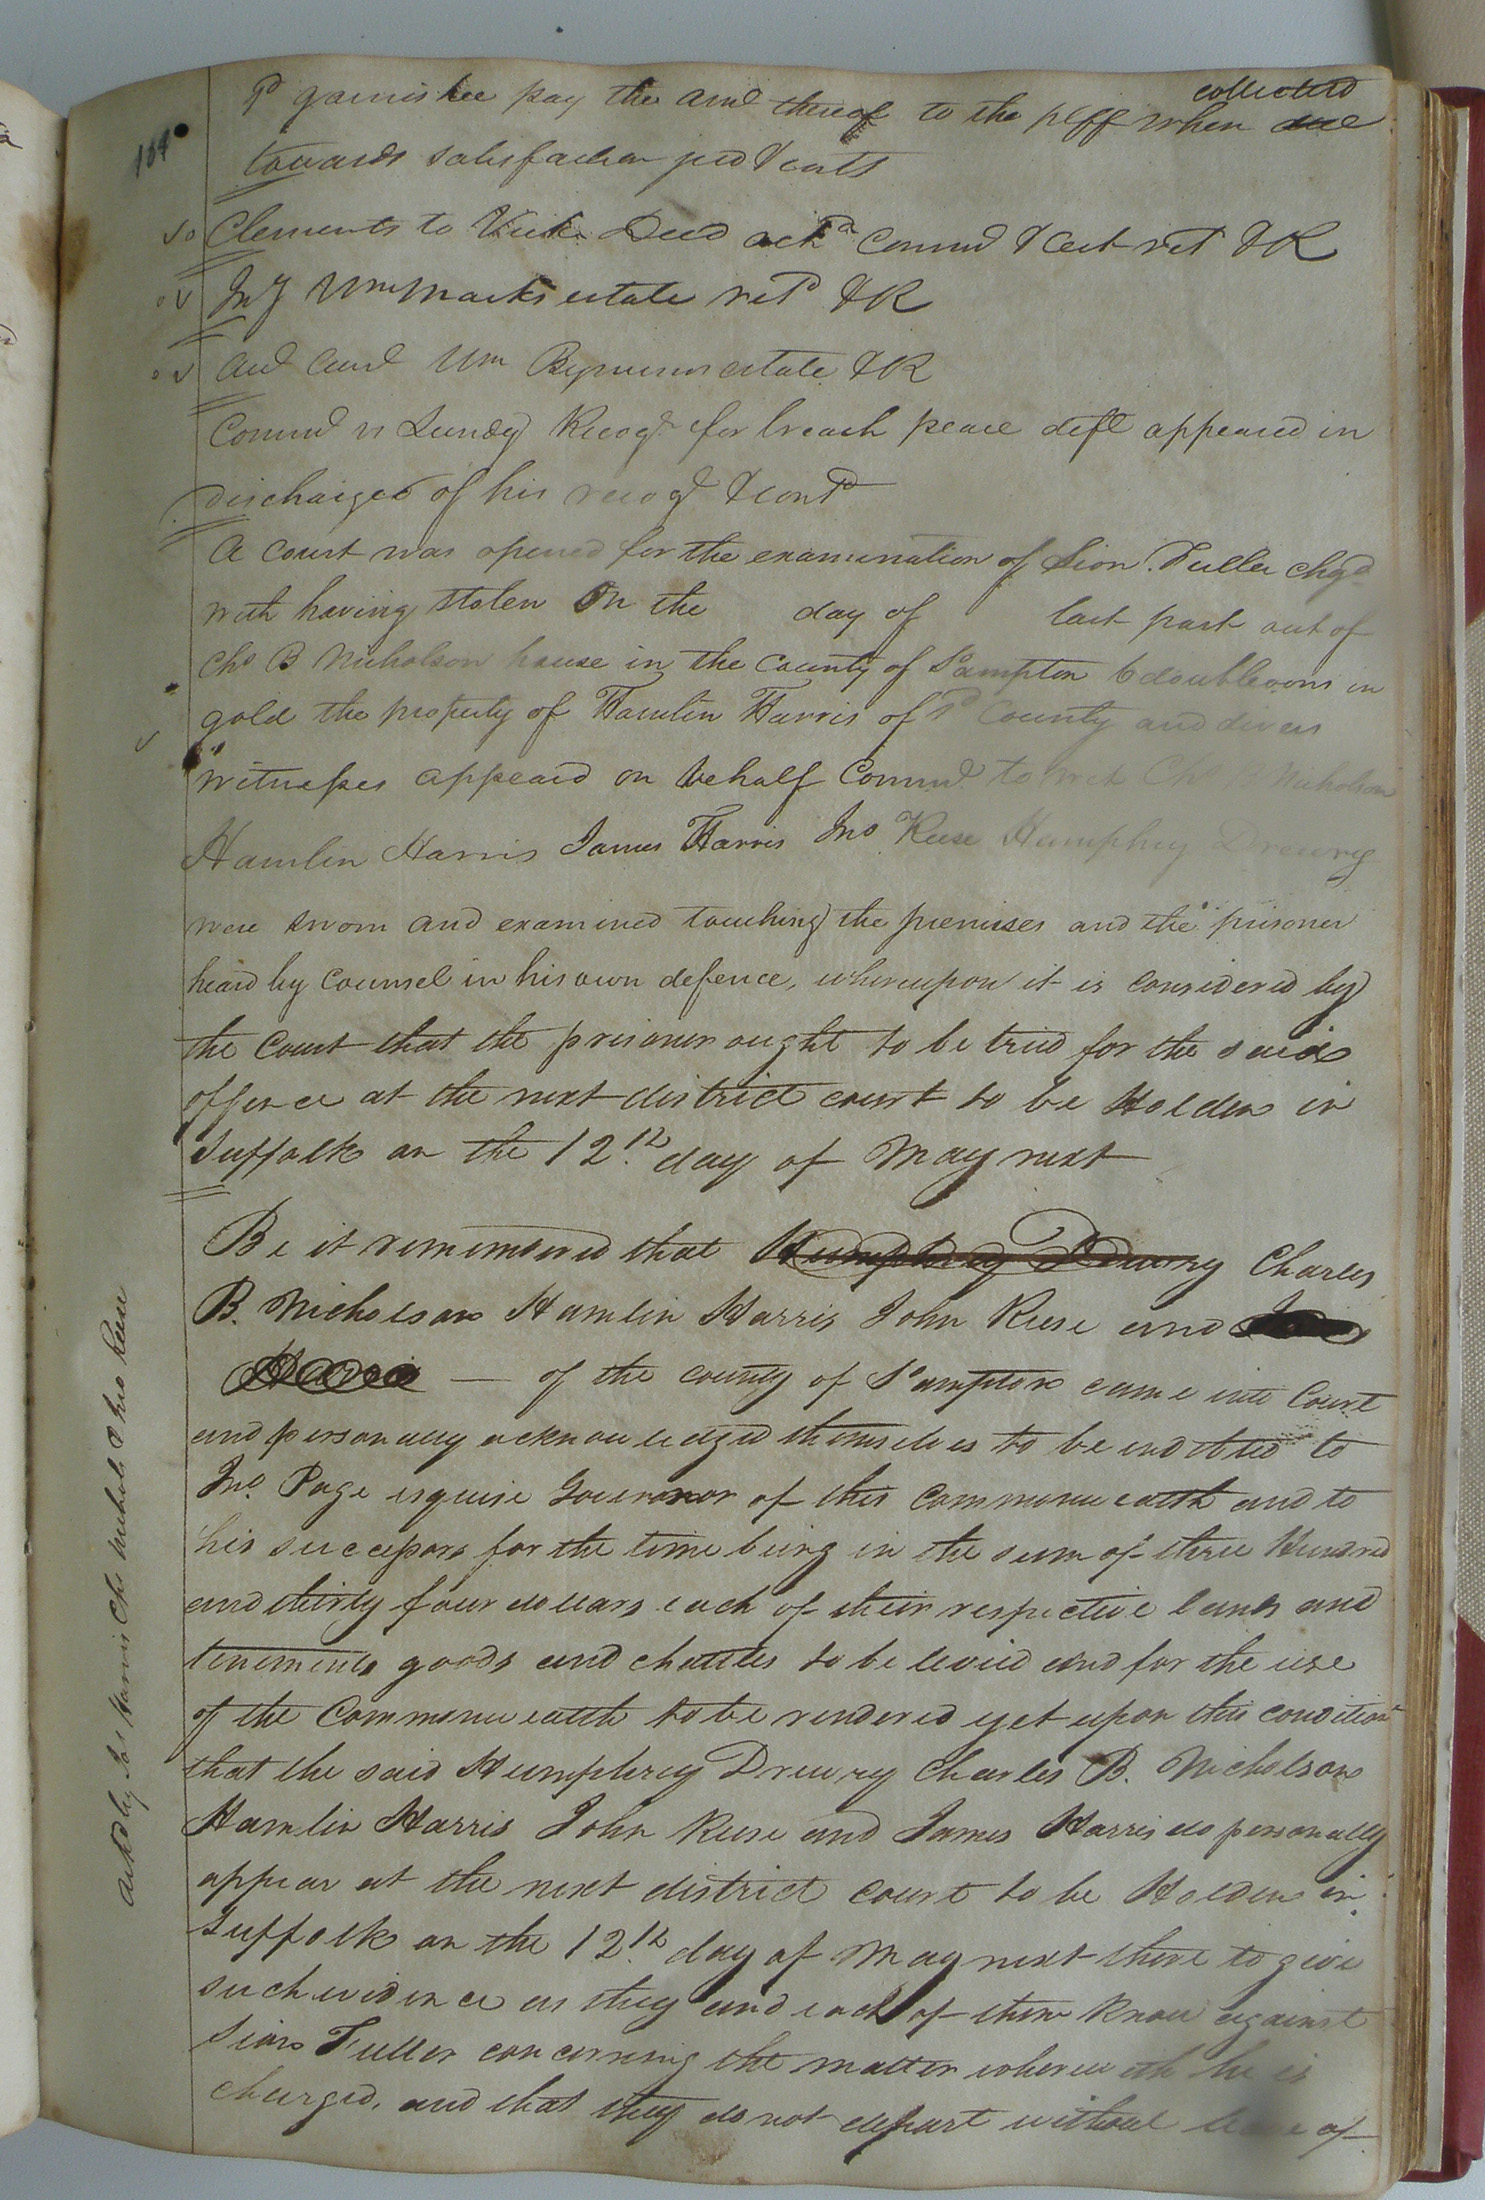 104
sd garnishee pay the amt thereof to the plff when due collected
towards satisfaction jud & costs
Clements to Vick Deed ackd Commd & cert ret & R
Inv Wm Marks estate retd & R
Aud Curd Wm Bynums estate & R
Commd vs Lundy Recogd for breach peace deft appeared in
discharged of his recogd & contd
A Court was opened for the examination of Sion Fuller chgd
with having stolen On the day of last past out of
Chs B Nicholson house in the County of S'ampton 6 doubloons in
gold the property of Hamlin Harris of sd County and divers
witnesses appeard on behalf Commd to wit Chs Nicholson
Hamlin Harris James Harris Jno Reese Humphry Drewry
were sworn and examined touching the premisses and the prisoner
heard by Counsel in his own defence, whereupon it is considered by
the Court that the prisoner ought to be tried for the said
offence at the next district court to be Holden in
Suffolk on the 12th day of May next
Be it remembered that Humphrey Drewry Charles
B. Nicholson Hamlin Harris John Reese and
Harris — of the county of S'ampton came into Court
and personally acknowledged themselves to be indebted to
Jno. Page esquire Governor of this Commonwealth and to
his successors for the time being in the sum of three Hundred
and thirty four dollars each of their respective lands and
tenements goods and chattles to be levied and for the use
of the Commonwealth to be rendered yet upon this condition
that the said Humphrey Drewry Charles B. Nicholson
Hamlin Harris John Reese and James Harris do personally
appear at the next district court to be Holden in
Suffolk on the 12th day of May next there to give
such evidence as they and each of them know against
Sion Fuller concerning the matter wherewith he is
charged, and that they do not depart without leave of
ackd by Jas Harris Chs Nichols & Jno Reese